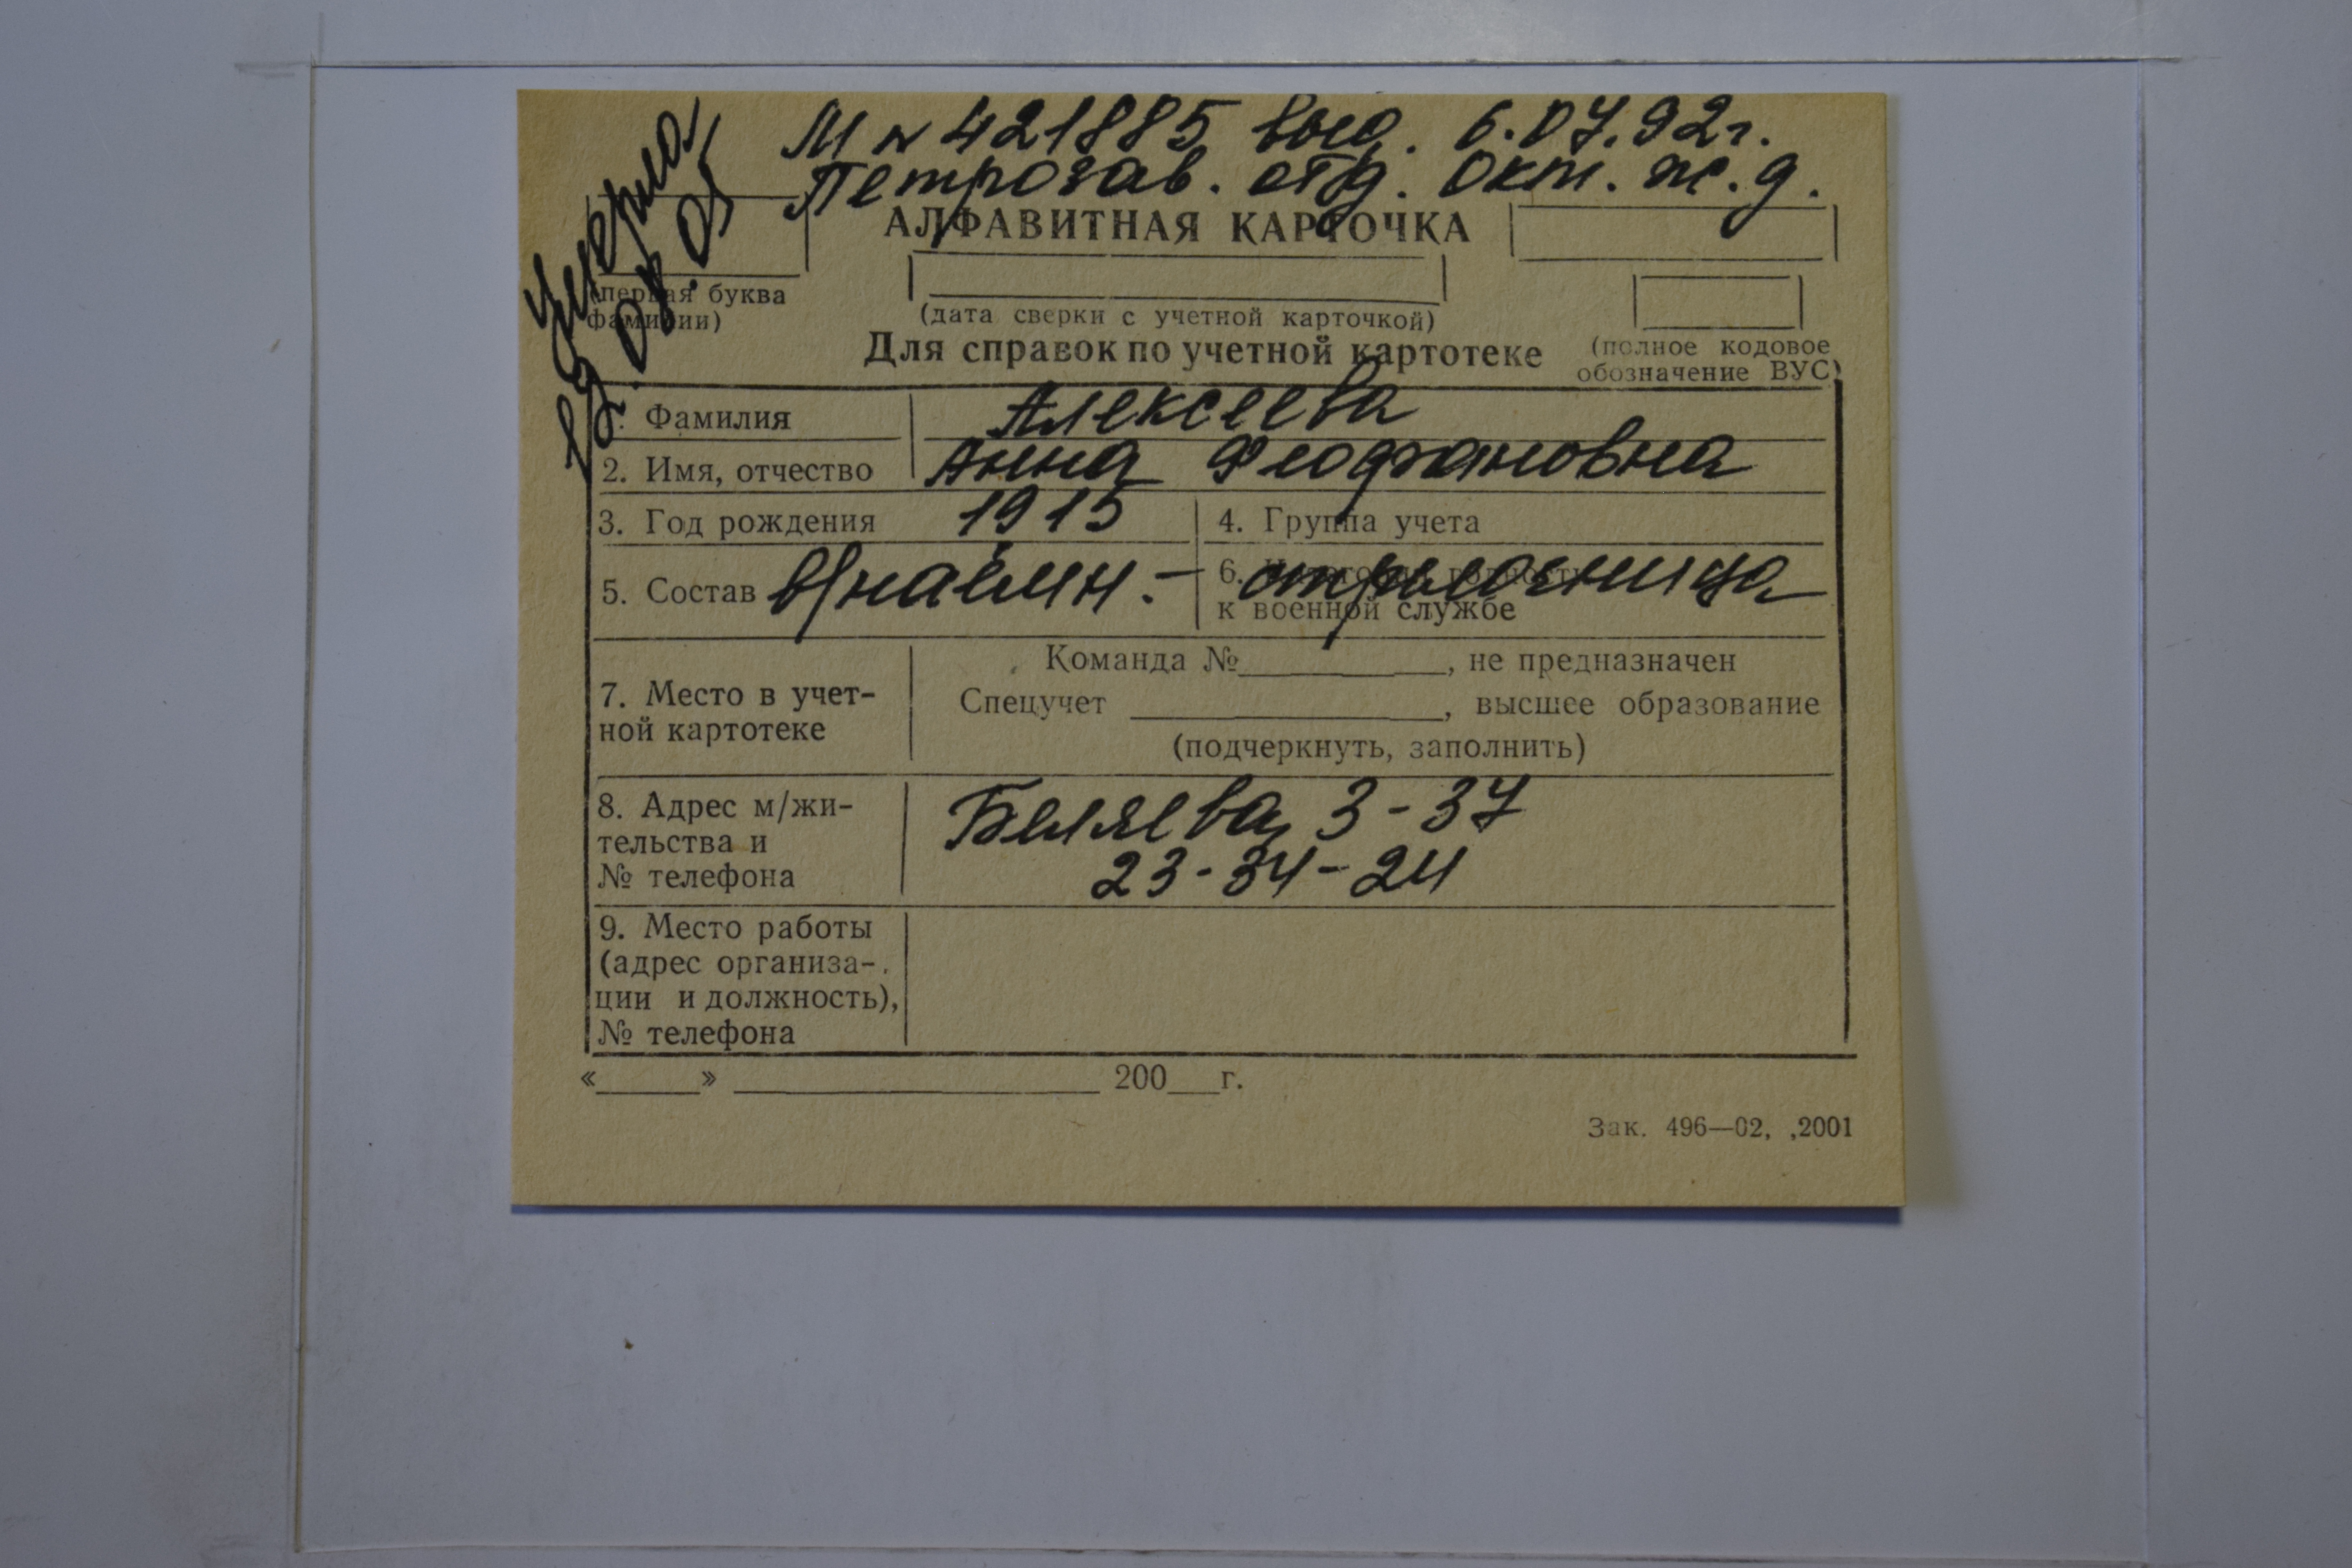 М № 421885 выд. 6.07.92г.
Петрозав. отд. Окт. ж.д.
Умерла
АЛФАВИТНАЯ КАРТОЧКА
(первая буква
фамилии)
(дата сверки с учетной карточкой)
Для справок по учетной картотеке
(полное кодовое
обозначение ВУС)
1. Фамилия Алексеева
2. Имя, отчество Анна Феофановна
3. Год рождения 1915
4. Группа учета
5. Состав в/наёмн. –
6. Категория годности
к военной службе
7. Место в учет-
ной картотеке
Команда № , не предназначен
Спецучет , высшее образование
(подчеркнуть, заполнить)
8. Адрес м/жи-
тельства и
№ телефона
Беляева, 3-37
23-34-24
9. Место работы
(адрес организа-
ции и должность),
№ телефона
« » 200 г.
Зак. 496—02, ,2001